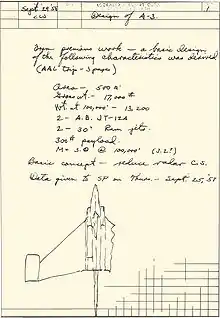 Sept 29, '58
Design of A-3.
1
From previous work - a basic design
of the following characteristics was derived
(AAL trip - 3 pages)
Area - 500 #'
Gross wt. - 17,000 #
Wt. at 100,000' - 13,200
2 - A.B. JT-12A
2 - 30" Ram jets.
300# payload.
M = 3.0 @ 100,000' (3.2?)
Basic concept - reduce radar C.S.
Data given to SP on Thur. - Sept 25, '58